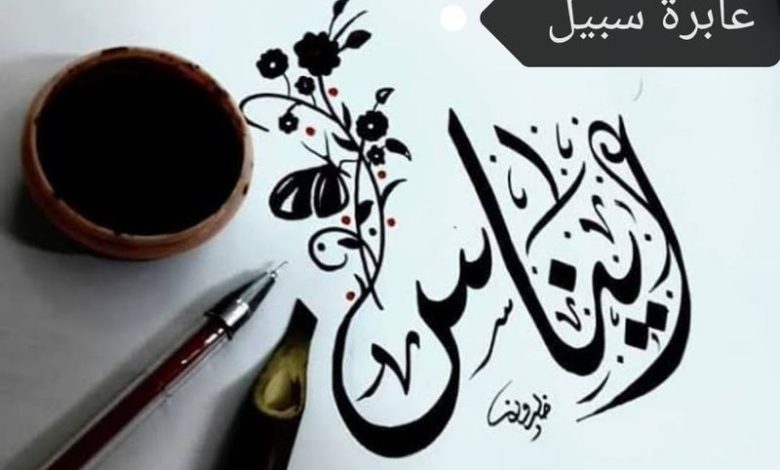 عابرة سبيل
إيناس